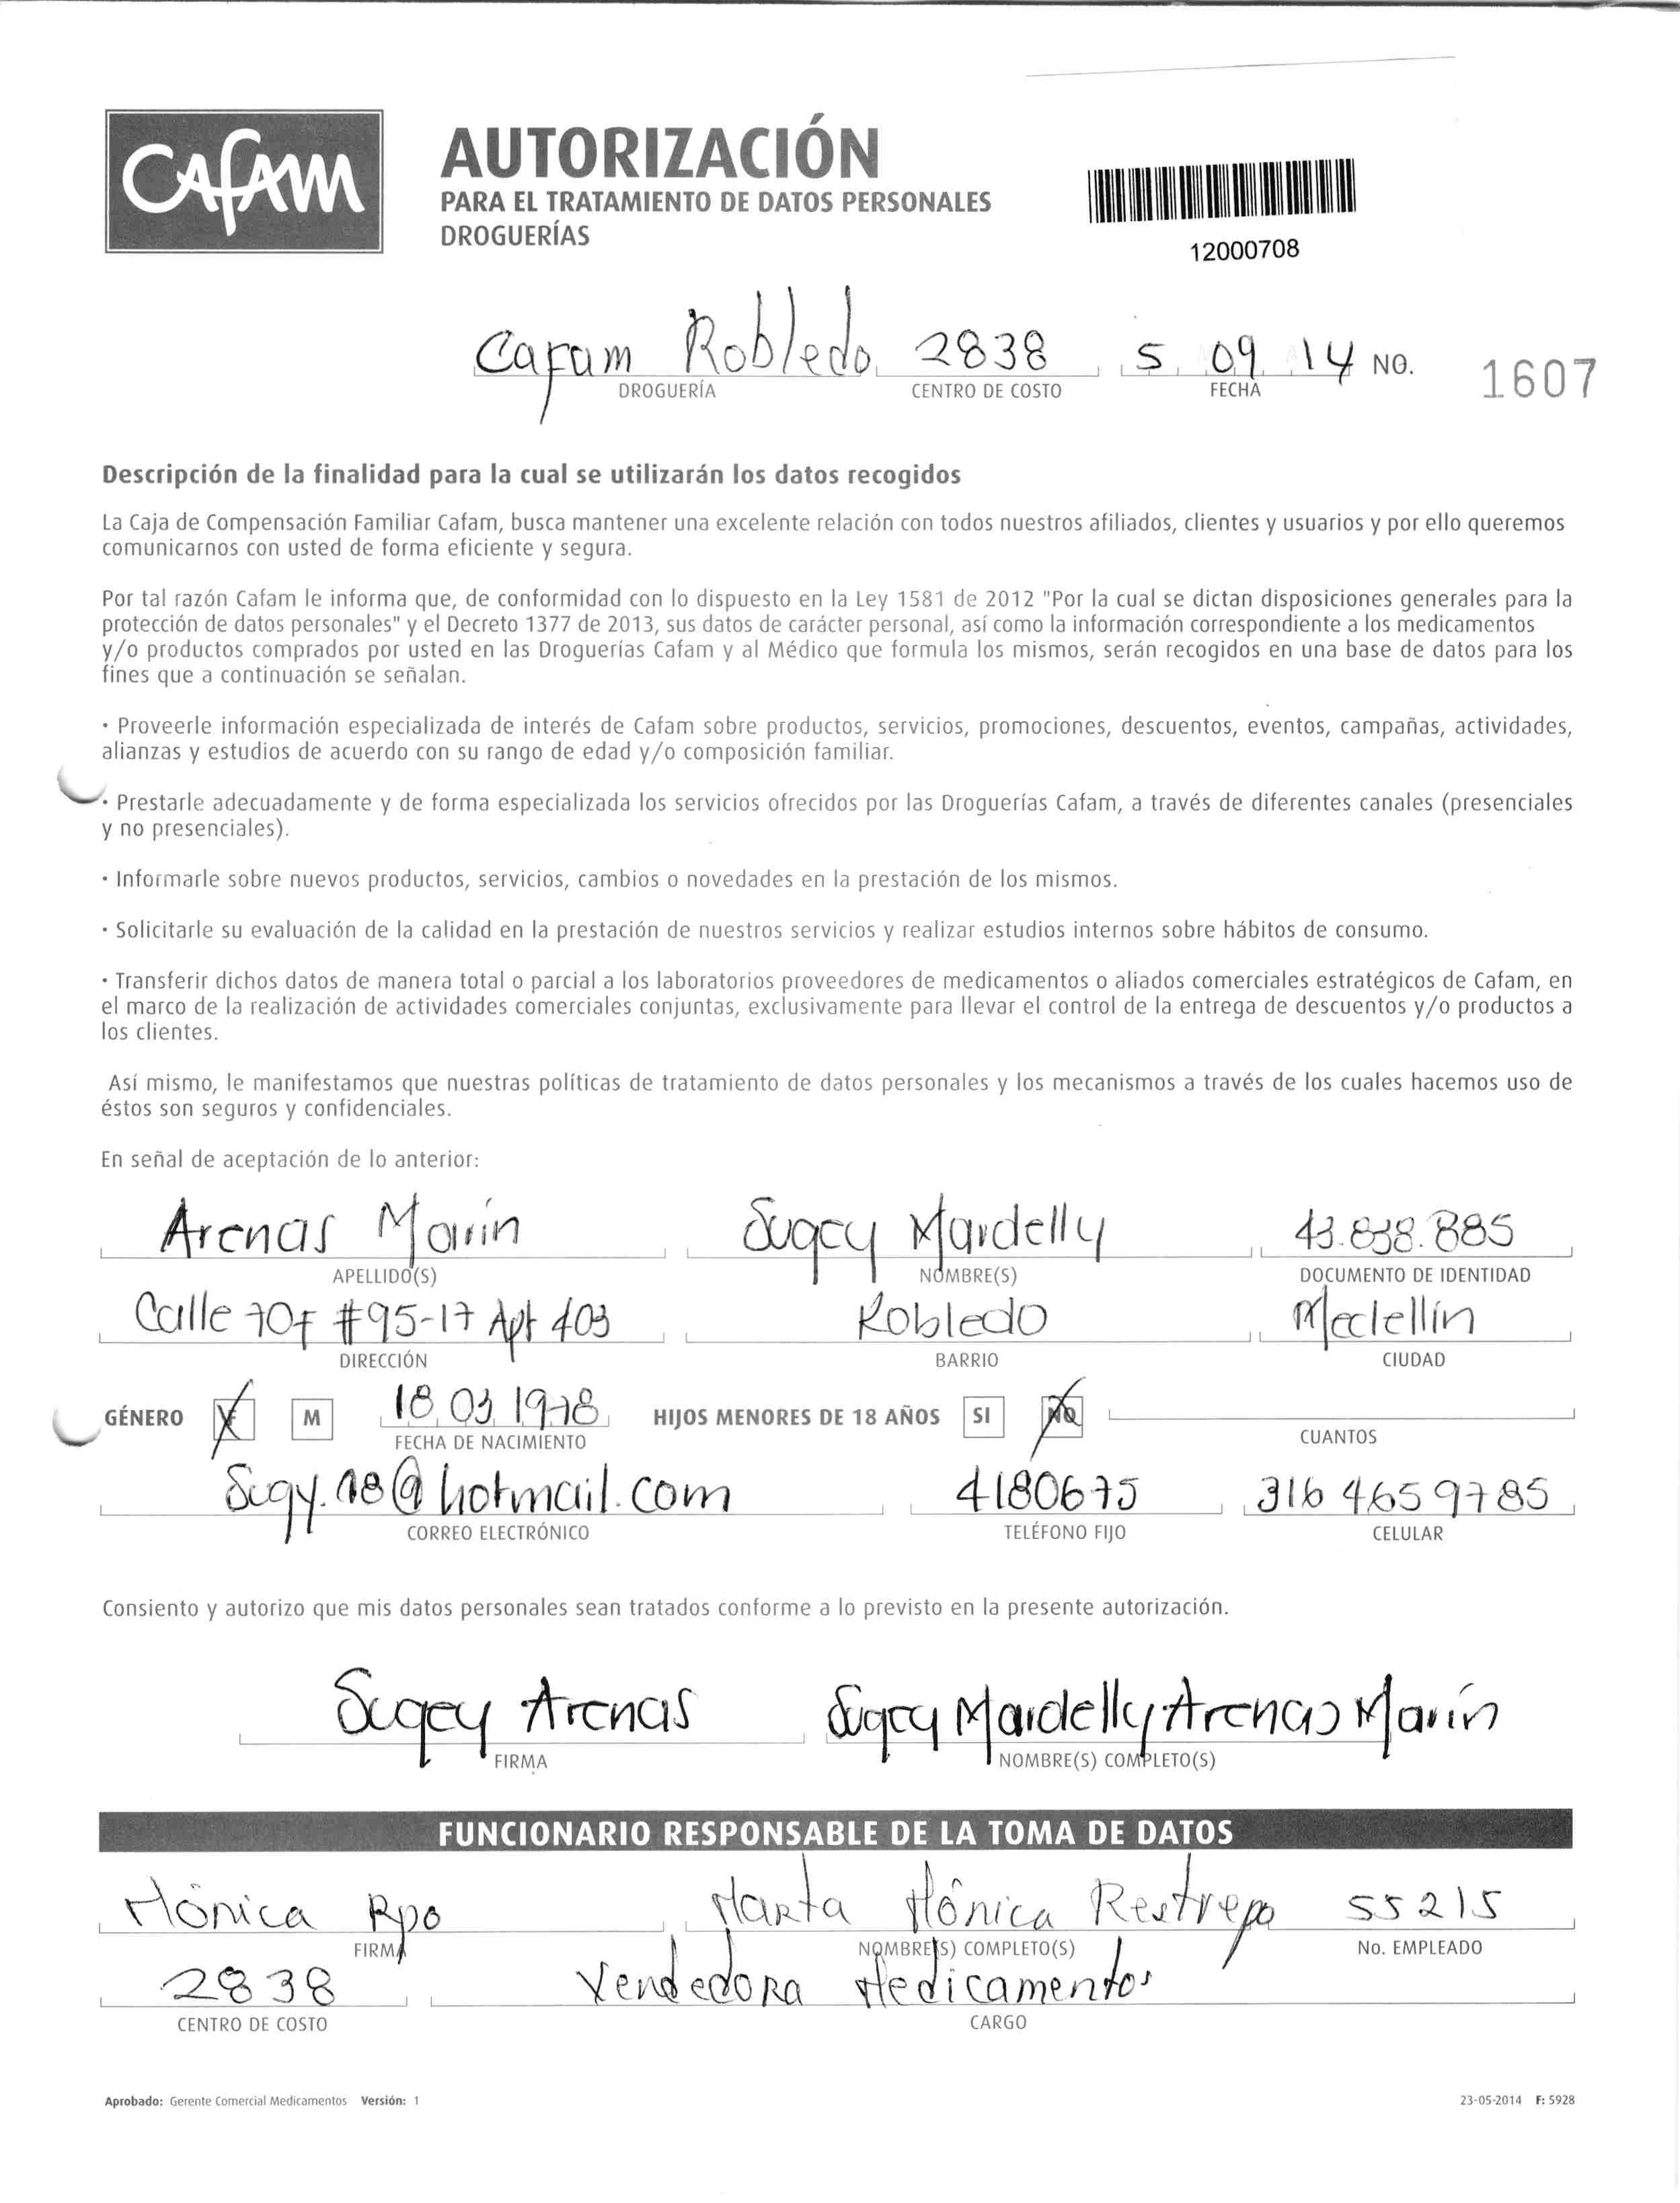 Cafam
AUTORIZACIÓN
PARA EL TRATAMIENTO DE DATOS PERSONALES
DROGUERÍAS
12000708
Cafam Robledo 2838 5 09 14 NO. 1607
DROGUERÍA CENTRO DE COSTO FECHA
Descripción de la finalidad para la cual se utilizarán los datos recogidos
La Caja de Compensación Familiar Cafam, busca mantener una excelente relación con todos nuestros afiliados, clientes y usuarios y por ello queremos
comunicarnos con usted de forma eficiente y segura.
Por tal razón Cafam le informa que, de conformidad con lo dispuesto en la Ley 1581 de 2012 "Por la cual se dictan disposiciones generales para la
protección de datos personales" y el Decreto 1377 de 2013, sus datos de carácter personal, así como la información correspondiente a los medicamentos
y/o productos comprados por usted en las Droguerías Cafam y al Médico que formula los mismos, serán recogidos en una base de datos para los
fines que a continuación se señalan.
· Proveerle información especializada de interés de Cafam sobre productos, servicios, promociones, descuentos, eventos, campañas, actividades,
alianzas y estudios de acuerdo con su rango de edad y/o composición familiar.
· Prestarle adecuadamente y de forma especializada los servicios ofrecidos por las Droguerías Cafam, a través de diferentes canales (presenciales
y no presenciales).
· Informarle sobre nuevos productos, servicios, cambios o novedades en la prestación de los mismos.
· Solicitarle su evaluación de la calidad en la prestación de nuestros servicios y realizar estudios internos sobre hábitos de consumo.
· Transferir dichos datos de manera total o parcial a los laboratorios proveedores de medicamentos o aliados comerciales estratégicos de Cafam, en
el marco de la realización de actividades comerciales conjuntas, exclusivamente para llevar el control de la entrega de descuentos y/o productos a
los clientes.
Así mismo, le manifestamos que nuestras políticas de tratamiento de datos personales y los mecanismos a través de los cuales hacemos uso de
éstos son seguros y confidenciales.
En señal de aceptación de lo anterior:
Arenas Marín Sugey Mardelly 43.838.885
APELLIDO(S) NOMBRE(S) DOCUMENTO DE IDENTIDAD
Calle 70f #95-17 Apt 403 Robledo Medellín
DIRECCIÓN BARRIO CIUDAD
GÉNERO F M 18 03 1978 HIJOS MENORES DE 18 AÑOS SI NO
FECHA DE NACIMIENTO CUANTOS
Sugy.18@hotmail.com 4180675 316 465 9785
CORREO ELECTRÓNICO TELÉFONO FIJO CELULAR
Consiento y autorizo que mis datos personales sean tratados conforme a lo previsto en la presente autorización.
Sugey Arenas Sugey Mardelly Arenas Marín
FIRMA NOMBRE(S) COMPLETO(S)
FUNCIONARIO RESPONSABLE DE LA TOMA DE DATOS
Mónica Rpo Marta Mónica Restrepo 55215
FIRMA NOMBRE(S) COMPLETO(S) No. EMPLEADO
2838 Vendedora Medicamentos
CENTRO DE COSTO CARGO
Aprobado: Gerente Comercial Medicamentos Versión: 1 23-05-2014 F: 5928